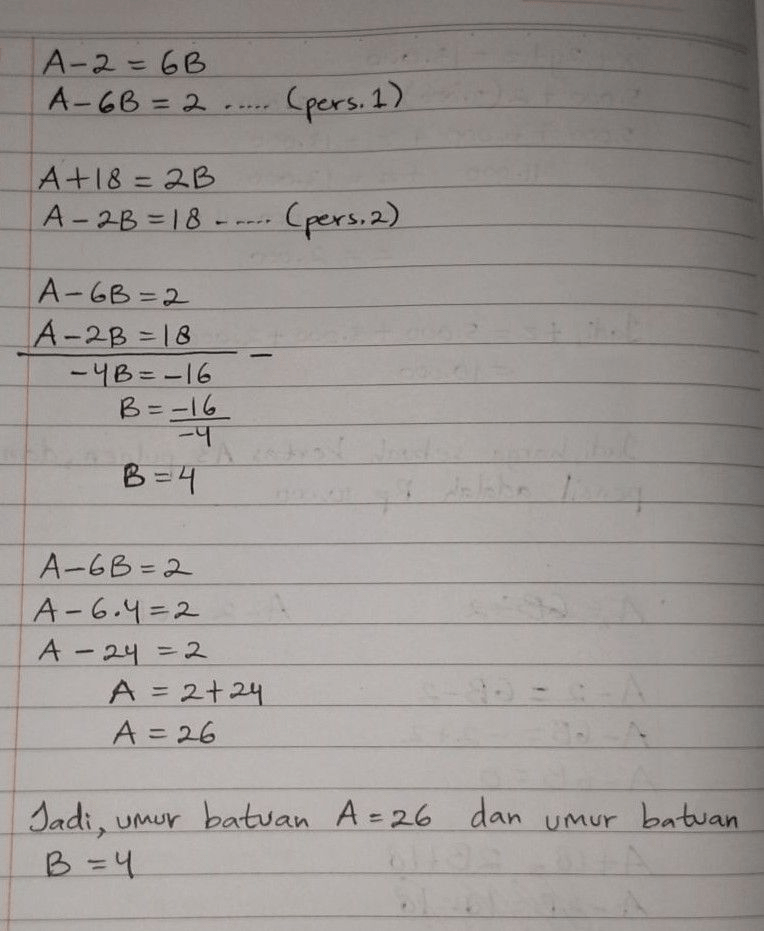 A-2 = 6B
A-6B = 2 ..... (pers.1)
A+18 = 2B
A-2B = 18 ..... (pers.2)
A-6B = 2
A-2B = 18 -
-4B = -16
B = -16
-4
B = 4
A-6B = 2
A-6.4 = 2
A-24 = 2
A = 2+24
A = 26
Jadi, umur batuan A = 26 dan umur batuan
B = 4